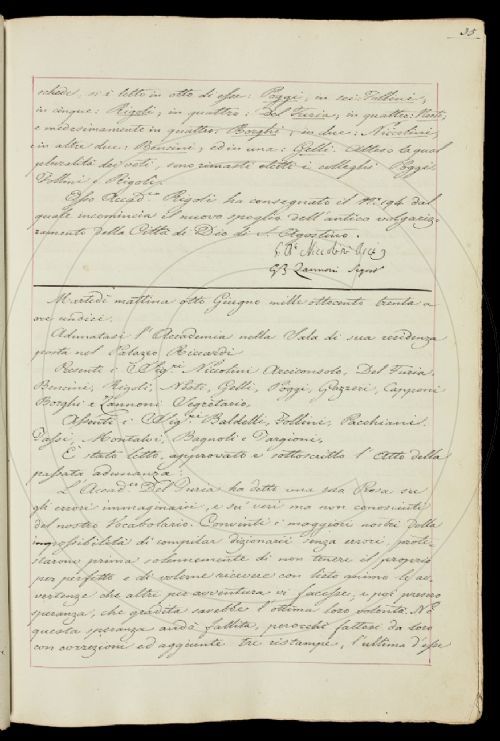 35.
schede, si è letto in otto di esse: Poggi, in sei: Follini,
in cinque: Rigoli, in quattro: Del Furia, in quattro: Nesti,
e medesimamente in quattro: Borghi, in due: Niccolini,
e in altre due: Bencini, ed in una: Gelli. Atteso la qual
pluralità dei voti, sono rimasti eletti i colleghi Poggi
Follini e Rigoli.
Esso Accad.co Rigoli ha consegnato il N.o 194 dal
quale incomincia il nuovo spoglio dell'antico volgariz-
zamento della Città di Dio di S. Agostino.
G. B.a Niccolini
GB Zannoni Segret.o
Martedì mattina otto Giugno mille ottocento trenta a
ore undici.
Adunatasi l'Accademia nella Sala di sua residenza
posta nel Palazzo Riccardi
Presenti i Sig.ri Niccolini Arciconsolo, Del Furia,
Bencini, Rigoli, Nesti, Gelli, Poggi, Gazzeri, Capponi
Borghi e Zannoni Segretario,
Assenti i Sig.ri Baldelli, Follini, Pacchiani,
Tassi, Montalvi, Bagnoli e Targioni,
E' stato letto, approvato e sottoscritto l'Atto della
passata adunanza.
L'Accad.co Del Furia ha detto una sua Prosa su
gli errori immaginarii, e su' veri ma non conosciuti
del nostro Vocabolario. Convinti i maggiori nostri della
impossibilità di compilar dizionarii senza errori, prote-
starono prima solennemente di non tenere il proprio
per perfetto e di volerne ricevere con lieto animo le av-
vertenze che altri per avventura vi facesse; e poi presero
speranza, che gradita sarebbe l'ottima loro volontà. Nè
questa speranza andò fallita, perocchè fattesi da loro
con correzioni ed aggiunte tre ristampe, l'ultima d'esse